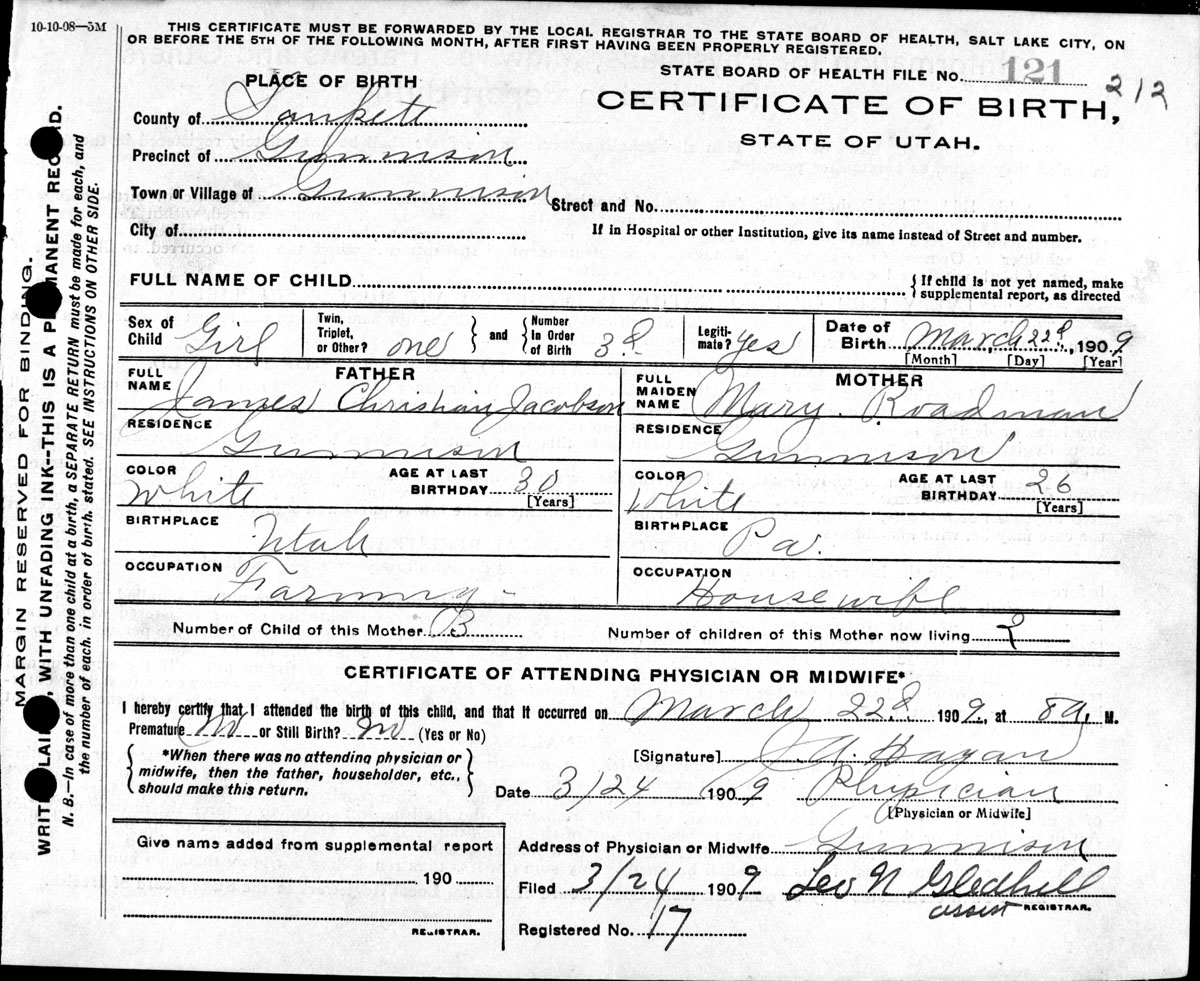 10-10-08—5M
THIS CERTIFICATE MUST BE FORWARDED BY THE LOCAL REGISTRAR TO THE STATE BOARD OF HEALTH, SALT LAKE CITY, ON
OR BEFORE THE 5TH OF THE FOLLOWING MONTH, AFTER FIRST HAVING BEEN PROPERLY REGISTERED.
STATE BOARD OF HEALTH FILE NO. 121
212
CERTIFICATE OF BIRTH,
STATE OF UTAH.
PLACE OF BIRTH
County of Sanpete
Precinct of Gunnison
Town or Village of Gunnison
Street and No.
City of
If in Hospital or other Institution, give its name instead of Street and number.
FULL NAME OF CHILD { If child is not yet named, make
supplemental report, as directed
Sex of Child Girl Twin, Triplet, or Other? one } and { Number In Order of Birth 3d Legiti- mate? Yes Date of Birth March 22d, 1909
[Month] [Day] [Year]
FATHER
FULL NAME James Christian Jacobson
RESIDENCE Gunnison
COLOR White AGE AT LAST BIRTHDAY 30
[Years]
BIRTHPLACE Utah
OCCUPATION Farming
MOTHER
FULL MAIDEN NAME Mary Roadman
RESIDENCE Gunnison
COLOR White AGE AT LAST BIRTHDAY 26
[Years]
BIRTHPLACE Pa.
OCCUPATION Housewife
Number of Child of this Mother 3 Number of children of this Mother now living 2
CERTIFICATE OF ATTENDING PHYSICIAN OR MIDWIFE*
I hereby certify that I attended the birth of this child, and that it occurred on March 22d 1909, at 8 a, M.
Premature No or Still Birth? No (Yes or No)
{ *When there was no attending physician or
midwife, then the father, householder, etc.,
should make this return. }
[Signature] J.A. Hagan
Date 3/24 1909 Physician
[Physician or Midwife]
Address of Physician or Midwife Gunnison
Filed 3/24 1909 Leo N Gledhill
assist REGISTRAR.
Registered No. 17
Give name added from supplemental report
190
REGISTRAR.
MARGIN RESERVED FOR BINDING.
WRIT LAI , WITH UNFADING INK--THIS IS A P MANENT REC D.
N. B.—In case of more than one child at a birth, a SEPARATE RETURN must be made for each, and
the number of each, in order of birth, stated. SEE INSTRUCTIONS ON OTHER SIDE.